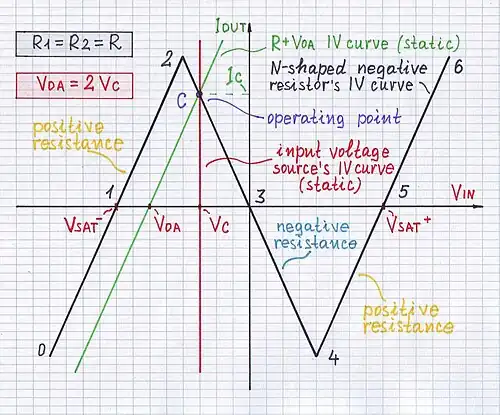 R1 = R2 = R
VOA = 2 VC
IOUT
R+VOA IV curve (static)
IC
N-shaped negative
resistor's IV curve
2
6
C
operating point
positive
resistance
input voltage
source's IV curve
(static)
1
3
5
VIN
VSAT-
VOA
VC
VSAT+
negative
resistance
positive
resistance
0
4